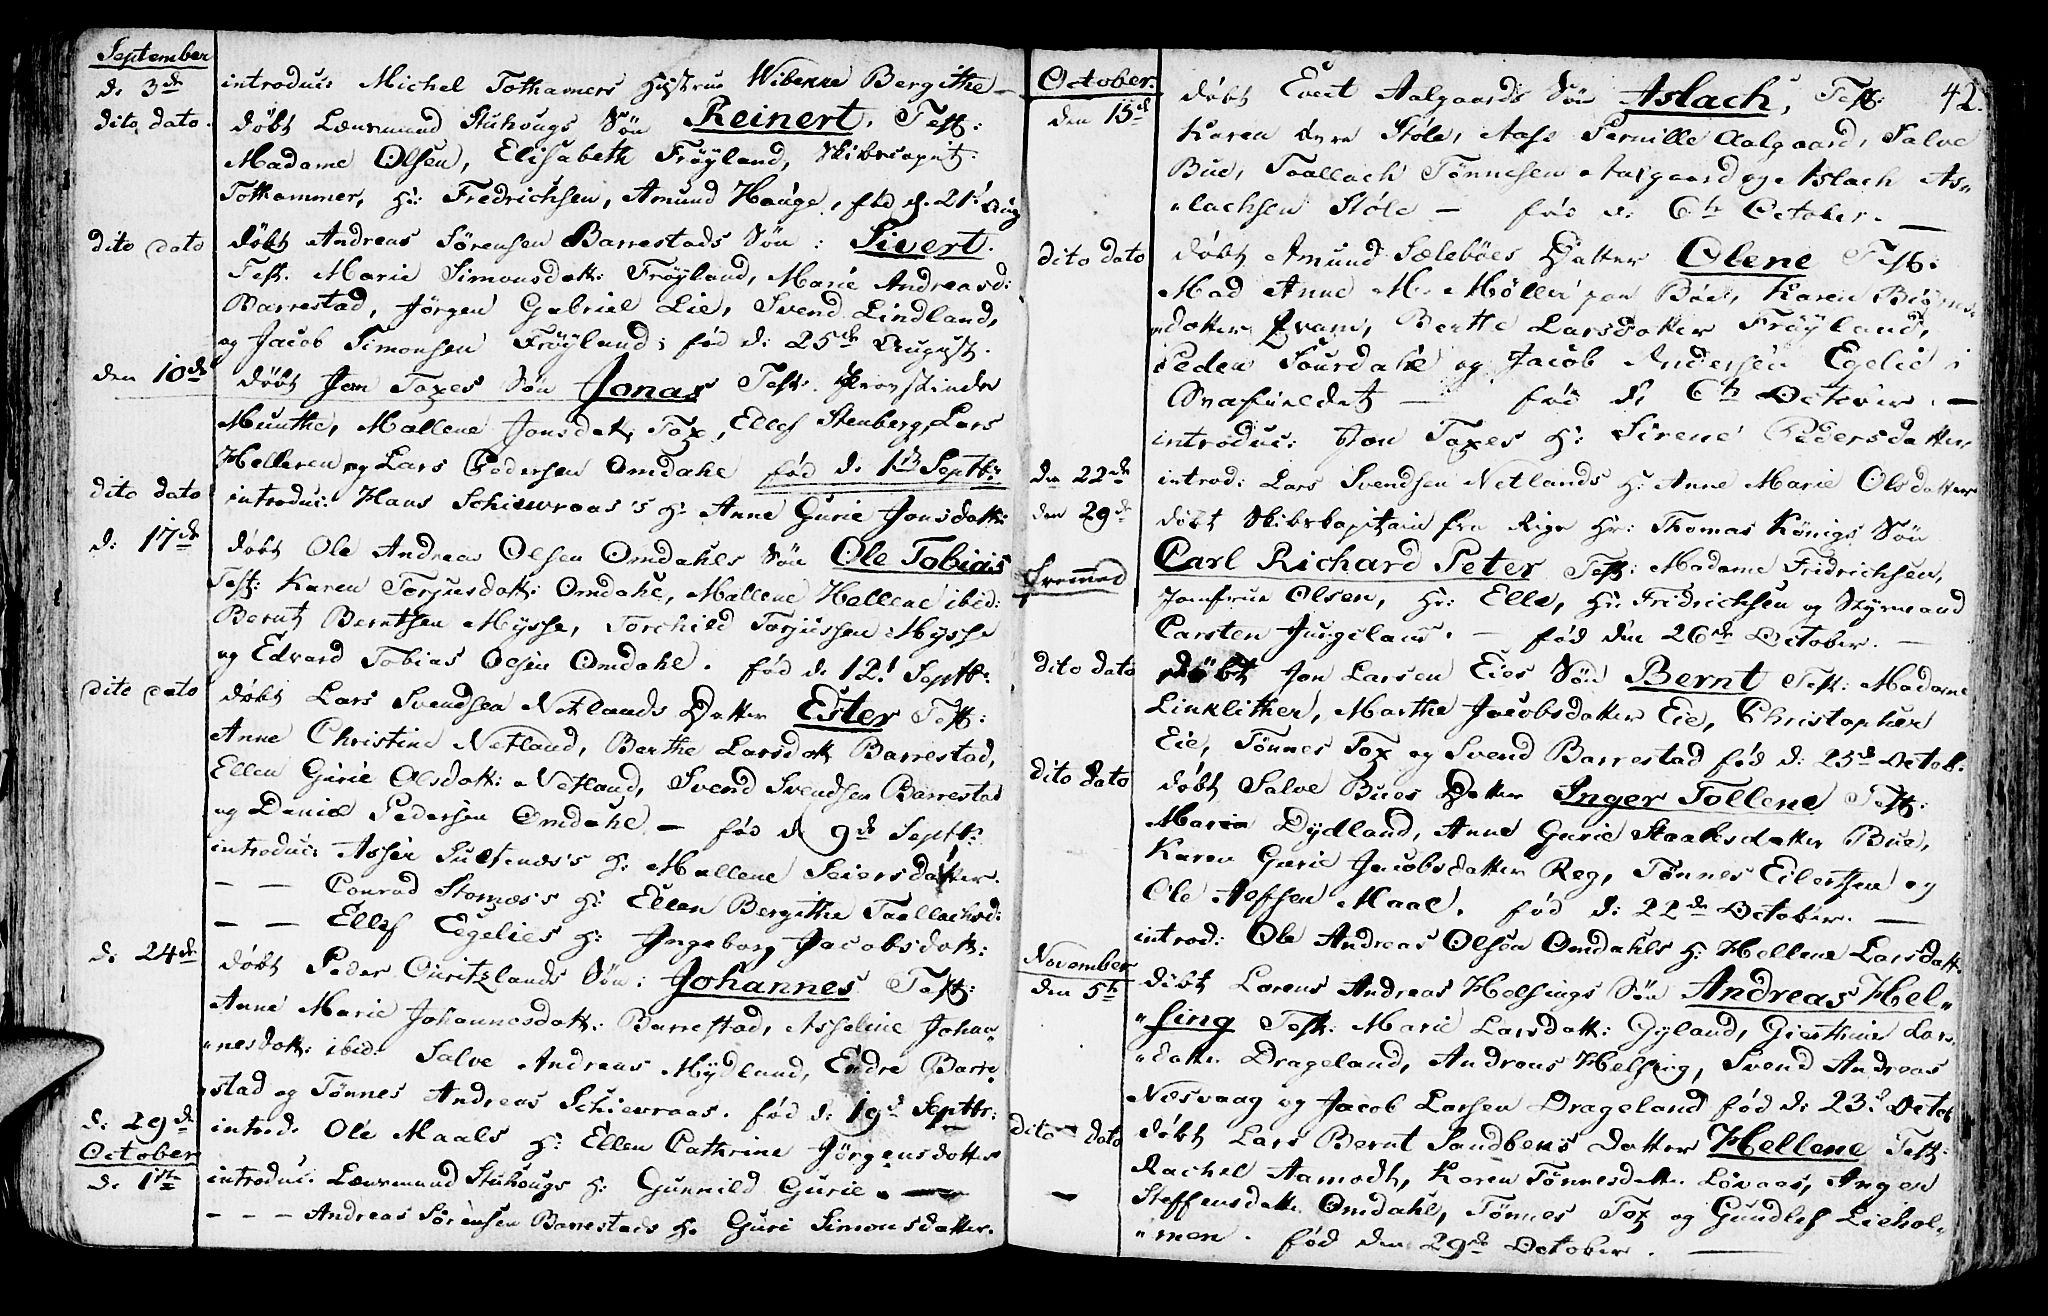 September
d: 3de introduc: Michel Tothamers Hustrue Wibenne Bergithe
dito dato. døbt Lauvmund Stuhougs Søn Reinert. Test:
Madame Olsen, Elisabeth Frøyland, Skibscapit:
Tothammer, Hr: Fredrichsen, Amund Houge, fød d. 21' Aug
dito dato døbt Andreas Sørensen Barrestads Søn: Sivert.
Test. Marie Simonsdatt: Frøyland, Marie Andreasd:
Barrestad, Jørgen Gabriel Lie, Svend Lindland,
og Jacob Simonsen Frøylund; fød d: 25de August.
den 10de døbt Jon Toxes Søn Jonas Test.
Munthe, Mallene Jonsdatt: Tox, Ellef Stenberg, Lars
Helleren og Lars Pedersen Omdahl fød d: 1ste Septbr:
dito dato introduc: Hans Schiewraas's H: Anne Gurie Jonsdatt:
d: 17de døbt Ole Andreas Olsen Omdahls Søn Ole Tobias
Test: Karen Torjusdatt: Omdahl, Mallene Hellene ibid:
Bernt Berntsen Mysse, Torchild Torjussen Mysse
og Edvard Tobias Olsen Omdahl. fød d: 12' Septbr:
dito dato døbt Lars Svendsen Netlands Datter Ester Test:
Anne Christine Netland, Berthe Larsdatt Barrestad,
Ellen Gurie Olsdatt: Netland, Svend Svendsen Barrestad
og Daniel Pedersen Omdahl — fød d 9de Septbr.
introduc: Asser Sulenæs's H: Mallene Seiersdatter.
— — Conrad Stornæs's H: Ellen Bergithe Taallachsd:
— — Ellef Eegelies H: Ingeborg Jacobsdatt:
d: 24de døbt Peder Quitzlands Søn: Johannes Test:
Anne Marie Johannesdatt: Barrestad, Asseline Johan„
„nesdatt: ibid: Salve Andreas Mydland, Endre Barre„
stad og Tønnes Andreas Schiewraas. fød d: 19d Septbr:
d: 29de introd: Ole Maals H: Ellen Cathrine Jørgensdatter
October
d: 1ste introduc. Lauvmund Stuhougs H: Gunnild Gurie. —
— — — Andreas Sørensen Barrestads H: Guri Simonsdatter.
42.
October.
den 15de døbt Evert Aalgaards Søn Aslach, Test:
Karen Støle, Aase Pernille Aalgaard, Salve
Bue, Taallach Tønnesen Aalgaard og Aslach As„
„lachsen Støle — fød d: 6te October. —
dito dato døbt Amund Sælebøes Datter Olene Test:
Mad Anne M. Møller paa Bøe, Karen Biørns„
„datter Qvam, Berthe Larsdatter Frøyland,
Peder Sourdahl og Jacob Andersen Egelie i
Qvafieldet — fød d: 6te October. —
introduc: Jon Toxes H: Sirene Pedersdatter
den 22de introd: Lars Svendsen Netlands H: Anne Marie Olsdatter
den 29de døbt Skibskapitain fra Riga Hr: Thomas Königs Søn
Fremmed Carl Richard Peter Test: Madame Fridrichsen,
Jomfrue Olsen, Hr: Elle, Hr: Fridrichsen og Styrmand
Carsten Jungclaus. — fød den 26de October. —
dito dato døbt Jon Larsen Eies Søn Bernt Test: Madame
Linklither, Marthe Jacobsdatter Eie, Christopher
Eie, Tønnes Tox og Svend Barrestad fød d: 25de Octob.
dito dato døbt Salve Bues Datter Inger Tollene Test:
Maria Dydland, Anne Gurie Staaksdatter Bue,
Karen Gurie Jacobsdatter Reg, Tønnes Eilertsen og
Ole Aessen Maal. fød d: 22de October. —
introd: Ole Andreas Olsen Omdahls H: Hellene Larsdatt.
November
den 5te døbt Lorens Andreas Helsings Søn Andreas Hel„
„sing Test: Marie Larsdatt: Gyland, Giertine Lars„
„datter Drageland, Andreas Helsing, Svend Andreas
Næsvaag og Jacob Larsen Drageland fød d: 23d Octob
dito dato døbt Lars Bernt Sandbens Datter Hellene Test:
Rachel Aamodt, Karen Tønnesdatter Lovaas, Inger
— Steffensdatter Omdahl, Tønnes Tox og Gundlef Liehol„
„men. fød den 29de October. —